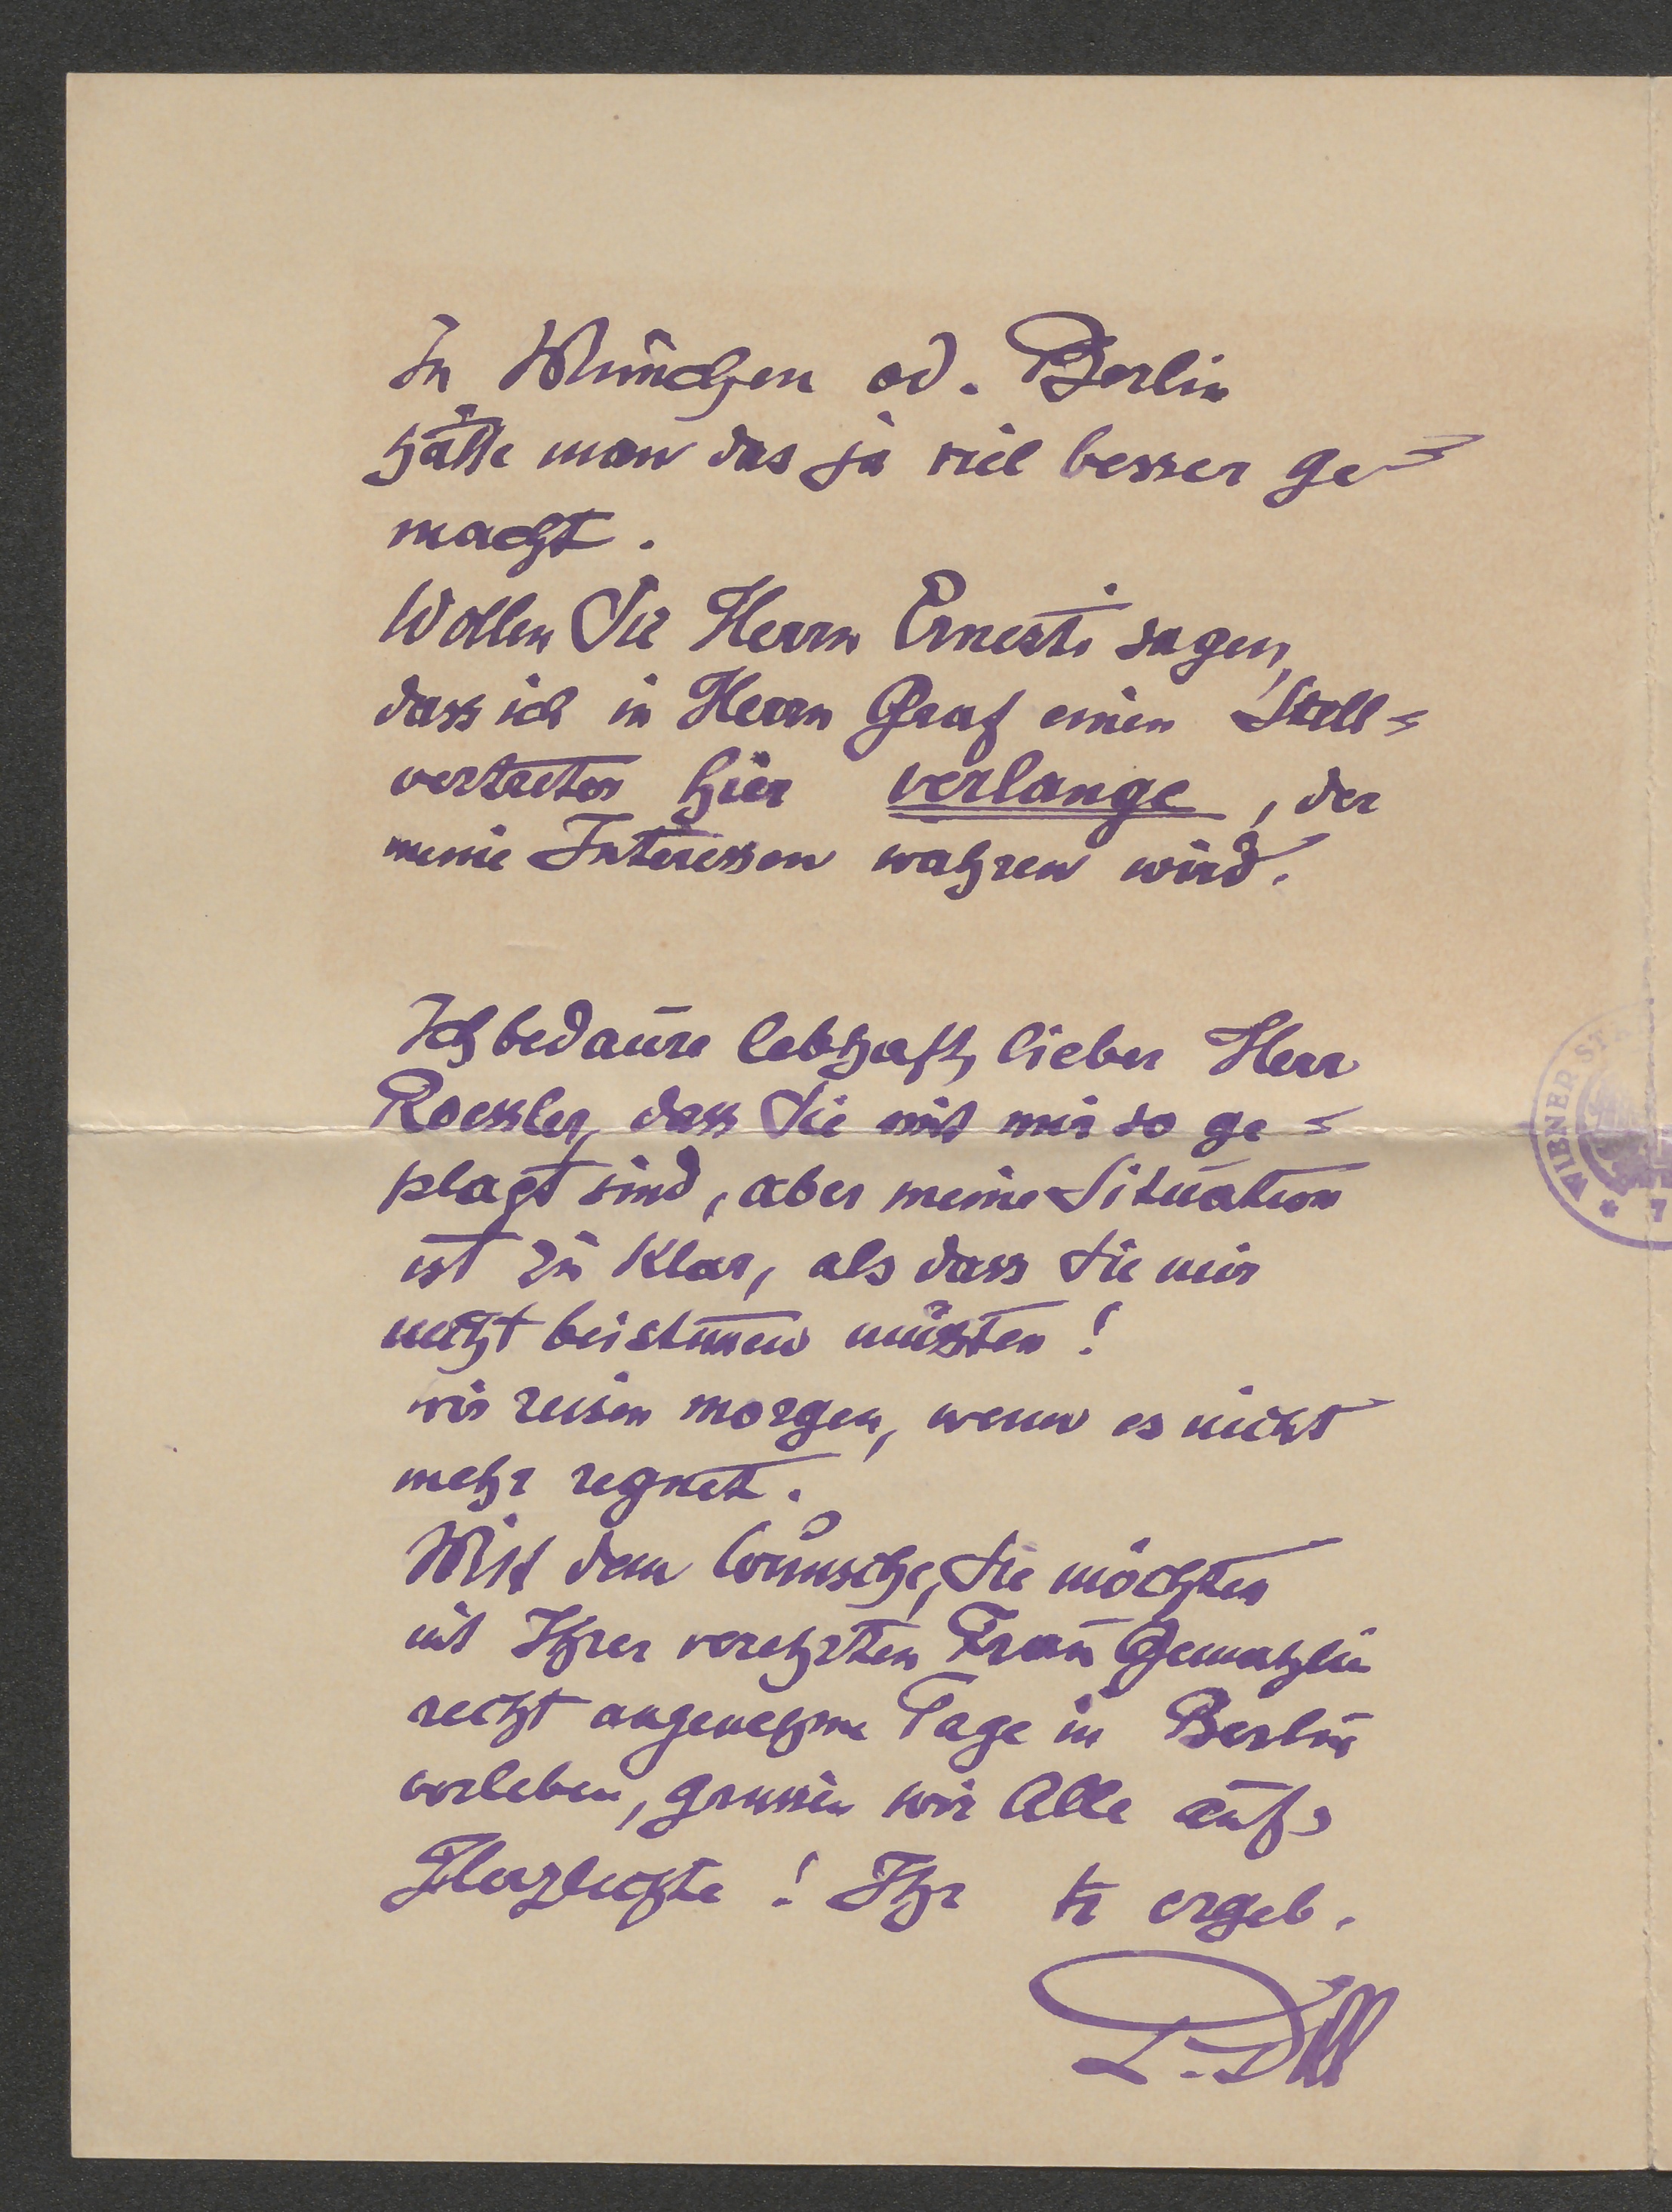 In München od. Berlin
hätte man das ja viel besser ge-
macht.
Wollen Sie Herrn Ernesti sagen,
dass ich in Herrn Graf einen Stell-
vertreter hier verlange, der
meine Interessen wahren wird.
Ich bedaure lebhaft, lieber Herr
Roessler, dass Sie mit mir so ge-
plagt sind, aber meine Situation
ist zu klar, als dass Sie mir
nicht beistimmen müssten!
wir reisen morgen, wenn es nicht
mehr regnet.
Mit dem Wunsche, Sie möchten
mit Ihrer verehrten Frau Gemahlin
recht angenehme Tage in Berlin
verleben, grussen wir Alle aufs
Herzlichste! Ihr ergeb.
L. Dill
WIENER ST
* 7